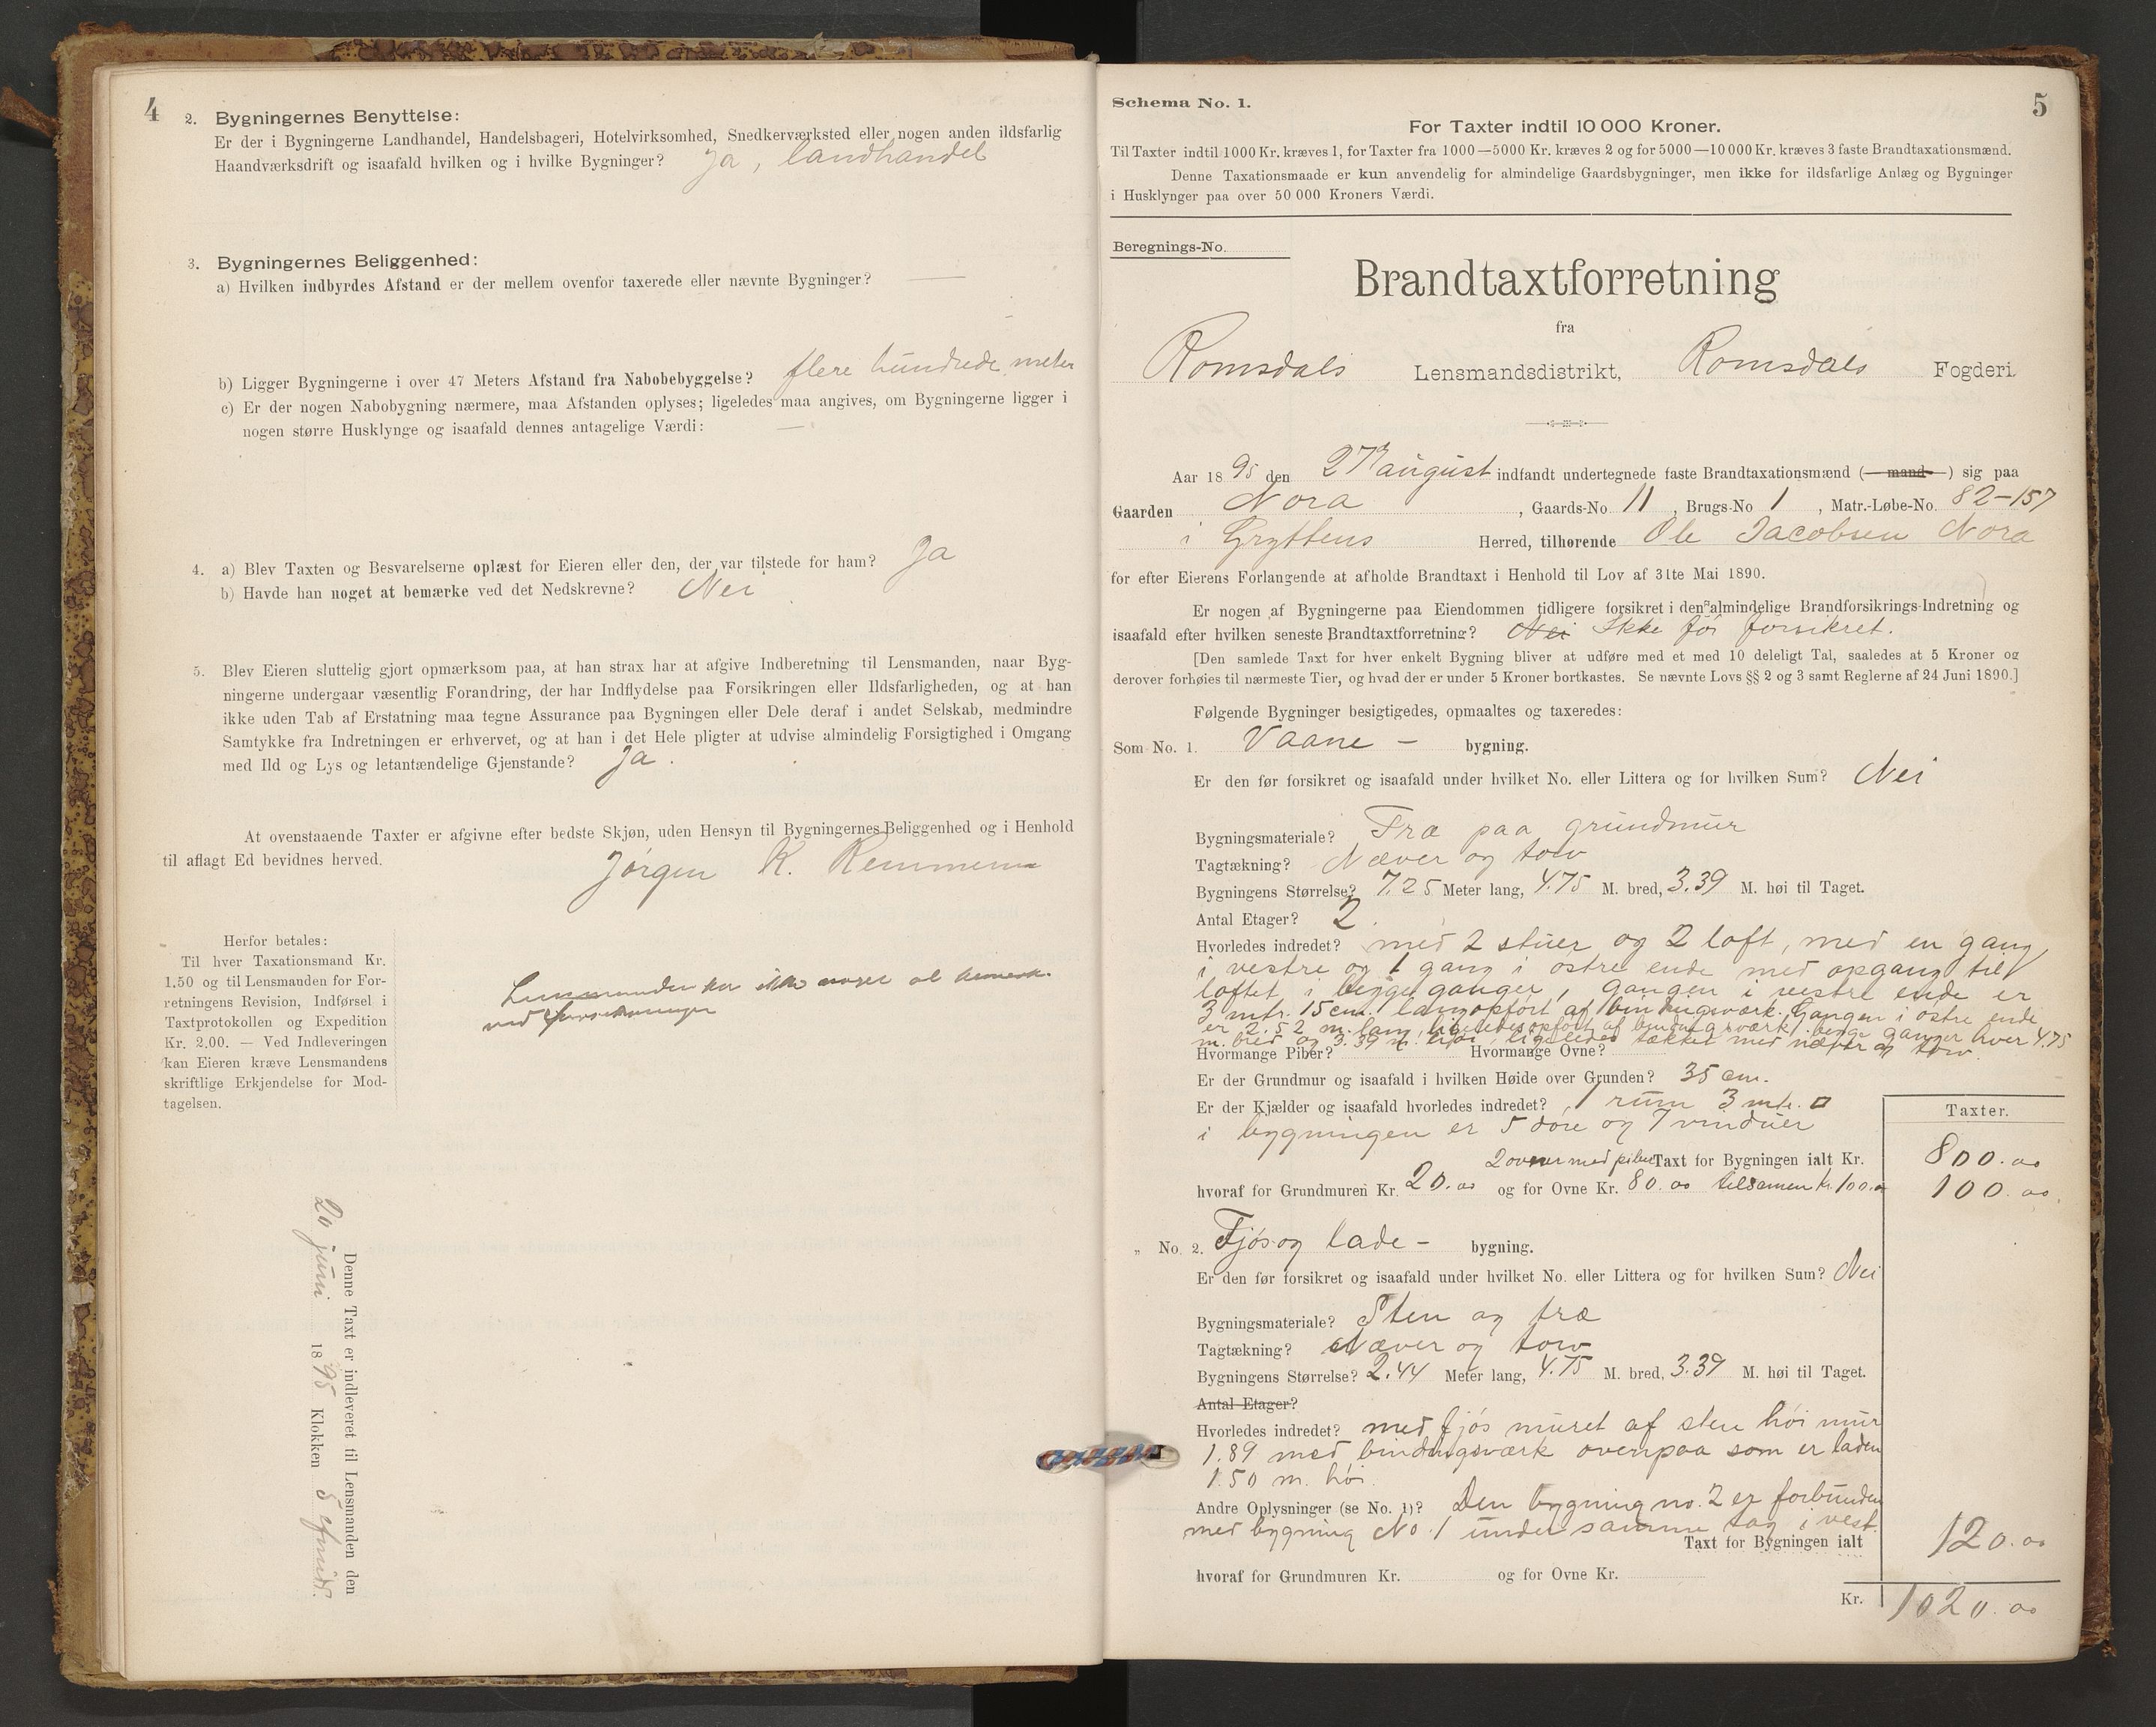 4
2. Bygningernes Benyttelse:
Er der i Bygningerne Landhandel, Handelsbageri, Hotelvirksomhed, Snedkerværksted eller nogen anden ildsfarlig
Haandværksdrift og isaafald hvilken og i hvilke Bygninger? Ja, landhandel
3. Bygningernes Beliggenhed:
a) Hvilken indbyrdes Afstand er der mellem ovenfor taxerede eller nævnte Bygninger? —
b) Ligger Bygningerne i over 47 Meters Afstand fra Nabobebyggelse? flere hundrede meter
c) Er der nogen Nabobygning nærmere, maa Afstanden oplyses; ligeledes maa angives, om Bygningerne ligger i
nogen større Husklynge og isaafald dennes antagelige Værdi: —
4. a) Blev Taxten og Besvarelserne oplæst for Eieren eller den, der var tilstede for ham? Ja
b) Havde han noget at bemærke ved det Nedskrevne? Nei
5. Blev Eieren sluttelig gjort opmærksom paa, at han strax har at afgive Indberetning til Lensmanden, naar Byg-
ningerne undergaar væsentlig Forandring, der har Indflydelse paa Forsikringen eller Ildsfarligheden, og at han
ikke uden Tab af Erstatning maa tegne Assurance paa Bygningen eller Dele deraf i andet Selskab, medmindre
Samtykke fra Indretningen er erhvervet, og at han i det Hele pligter at udvise almindelig Forsigtighed i Omgang
med Ild og Lys og letantændelige Gjenstande? Ja.
At ovenstaaende Taxter er afgivne efter bedste Skjøn, uden Hensyn til Bygningernes Beliggenhed og i Henhold
til aflagt Ed bevidnes herved.
Jørgen K. Remmem
Herfor betales:
Til hver Taxationsmand Kr.
1.50 og til Lensmanden for For-
retningens Revision, Indførsel i
Taxtprotokollen og Expedition
Kr. 2.00. — Ved Indleveringen
kan Eieren kræve Lensmandens
skriftlige Erkjendelse for Mod-
tagelsen.
Lensmanden har ikke noget at bemerke
ved forretningen
Denne Taxt er indleveret til Lensmanden den
20 juni 1895 Klokken 5 efmidd.
Schema No. 1.
5
For Taxter indtil 10 000 Kroner.
Til Taxter indtil 1000 Kr. kræves 1, for Taxter fra 1000—5000 Kr. kræves 2 og for 5000—10 000 Kr. kræves 3 faste Brandtaxationsmænd.
Denne Taxationsmaade er kun anvendelig for almindelige Gaardsbygninger, men ikke for ildsfarlige Anlæg og Bygninger
i Husklynger paa over 50 000 Kroners Værdi.
Beregnings-No.
Brandtaxtforretning
fra
Romsdals Lensmandsdistrikt, Romsdals Fogderi
Aar 1895 den 27 august indfandt undertegnede faste Brandtaxationsmænd (mand) sig paa
Gaarden Nora, Gaards-No 11, Brugs-No 1, Matr.-Løbe-No. 82-157
i Gryttens Herred, tilhørende Ole Jacobsen Nora
for efter Eierens Forlangende at afholde Brandtaxt i Henhold til Lov af 31te Mai 1890.
Er nogen af Bygningerne paa Eiendommen tidligere forsikret i den almindelige Brandforsikrings-Indretning og
isaafald efter hvilken seneste Brandtaxtforretning? Nei Ikke før forsikret.
[Den samlede Taxt for hver enkelt Bygning bliver at udføre med et med 10 deleligt Tal, saaledes at 5 Kroner og
derover forhøies til nærmeste Tier, og hvad der er under 5 Kroner bortkastes. Se nævnte Lovs §§ 2 og 3 samt Reglerne af 24 Juni 1890.]
Følgende Bygninger besigtigedes, opmaaltes og taxeredes:
Som No. 1. Vaane - bygning.
Er den før forsikret og isaafald under hvilket No. eller Littera og for hvilken Sum? Nei
Bygningsmateriale? Træ paa grundmur
Tagtækning? Næver og torv
Bygningens Størrelse? 7.25 Meter lang, 4.75 M. bred, 3.39 M. høi til Taget.
Antal Etager? 2.
Hvorledes indredet? med 2 stuer og 2 loft, med en gang
i vestre og 1 gang i østre ende med opgang til
loftet i begge ganger, gangen i vestre ende er
3 mtr. 15 cm. lang opført af bindingsværk. Gangen i østre ende
er 2.52 m. lang, ligeledes opført af bindingsværk. begge ganger hver 4.75
m. bred og 3.39 m. høi, ligeledes tækket med næver og torv.
Hvormange Piber? Hvormange Ovne?
Er der Grundmur og isaafald i hvilken Høide over Grunden? 35 cm.
Er der Kjælder og isaafald hvorledes indredet? 1 rum 3 mtr. □
i bygningen er 5 døre og 7 vinduer
Taxter.
2 ovner med piber Taxt for Bygningen ialt Kr. 800.00
hvoraf for Grundmuren Kr. 20.00 og for Ovne Kr. 80.00 tilsamen kr. 100.00 100.00
„ No. 2. Fjøs og lade - bygning.
Er den før forsikret og isaafald under hvilket No. eller Littera og for hvilken Sum? Nei
Bygningsmateriale? Sten og træ
Tagtækning? Næver og torv
Bygningens Størrelse? 2.44 Meter lang, 4.75 M. bred, 3.39 M. høi til Taget.
Antal Etager?
Hvorledes indredet? med fjøs muret af sten høi mur
1.89 med bindingsværk ovenpaa som er laden
1.50 m. høi.
Andre Oplysninger (se No. 1)? Den bygning no. 2 er forbunden
med bygning No. 1 under samme tag i vest.
Taxt for Bygningen ialt 120.00
hvoraf for Grundmuren Kr. og for Ovne Kr.
Kr. 1020.00